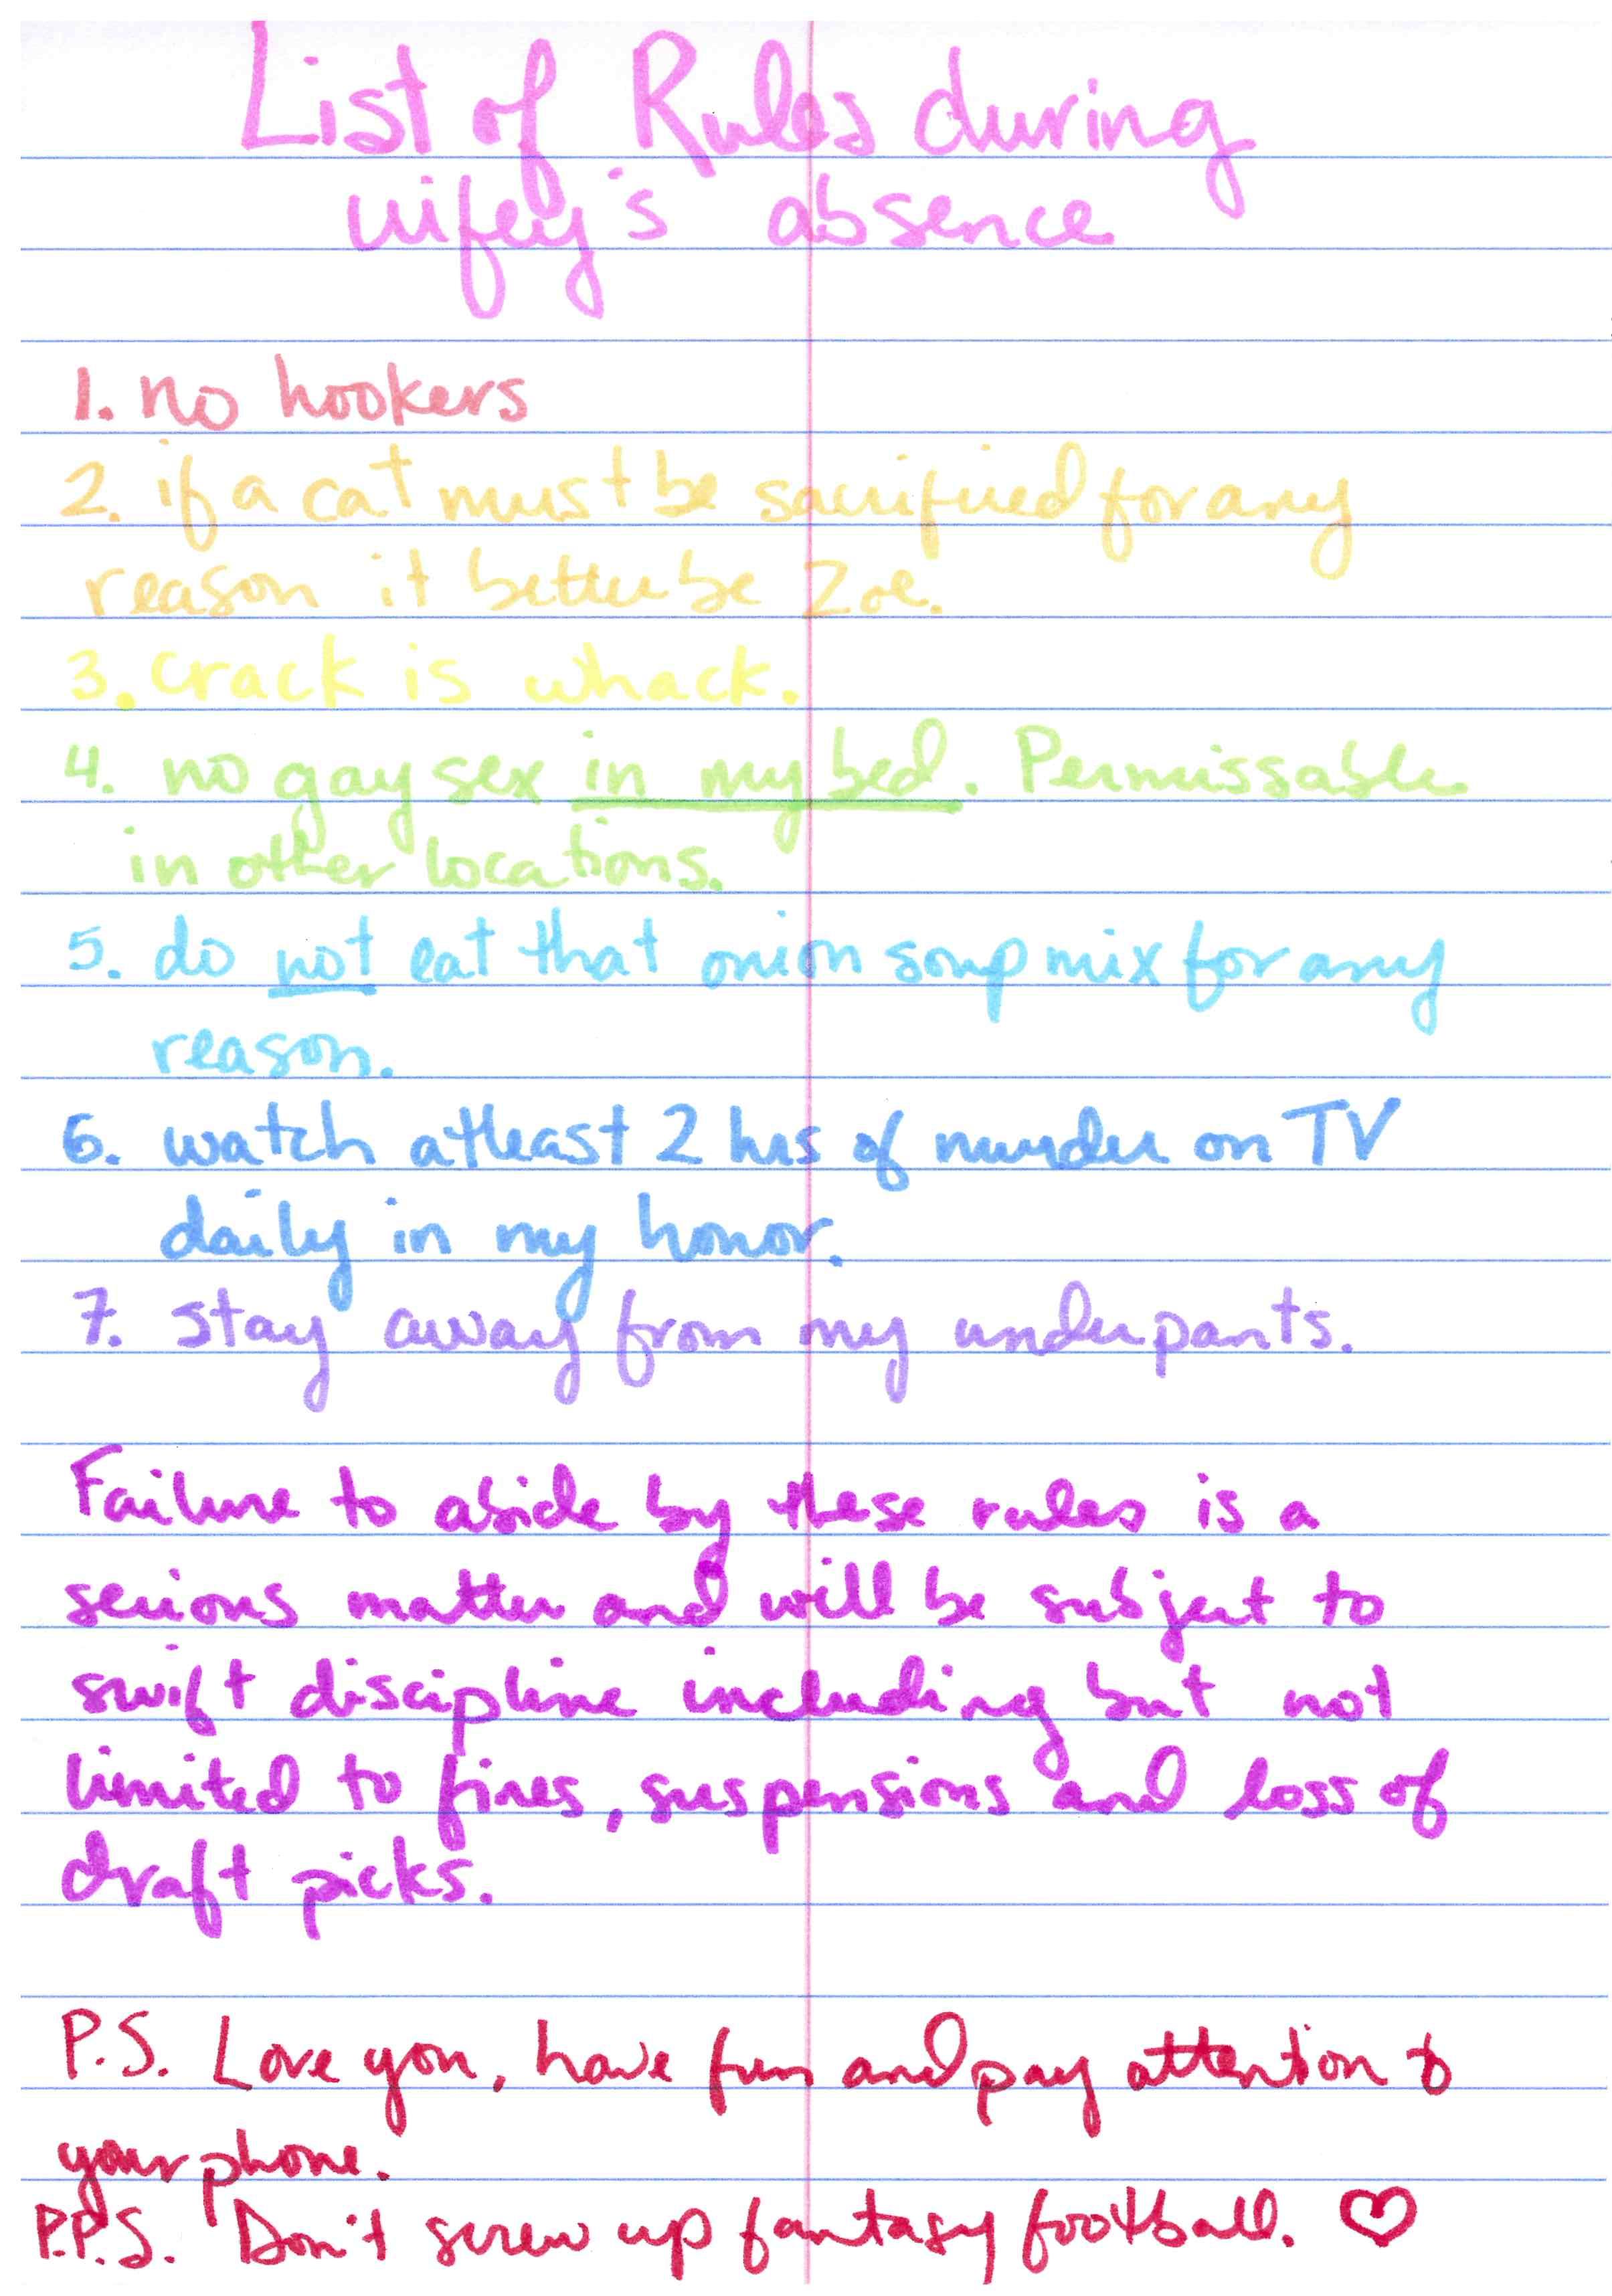 List of Rules during
wifey's absence
1. no hookers
2. if a cat must be sacrificed for any
reason it better be Zoe.
3. crack is whack.
4. no gay sex in my bed. Permissable
in other locations.
5. do not eat that onion soup mix for any
reason.
6. watch atleast 2 hrs of murder on TV
daily in my honor.
7. stay away from my underpants.
Failure to abide by these rules is a
serious matter and will be subject to
swift discipline including but not
limited to fines, suspensions and loss of
draft picks.
P.S. Love you, have fun and pay attention to
your phone.
P.P.S. Don't screw up fantasy football. ♡